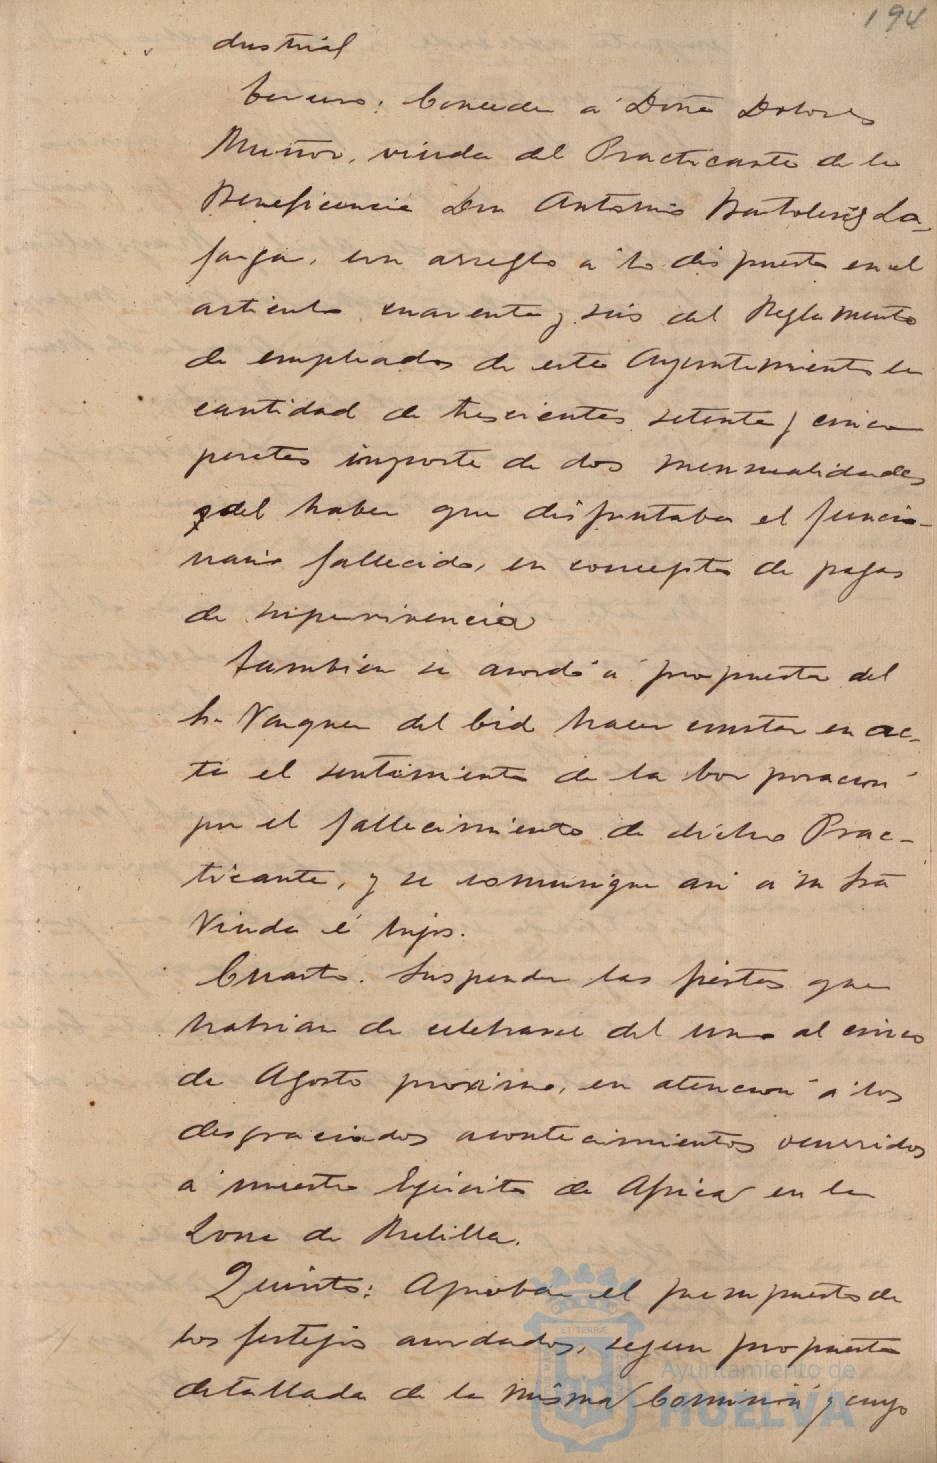 194
dustrial
Tercero: Conceder a Doña Dolores
Muñoz, viuda del Practicante de la
Beneficencia Don Antonio Bartolomé La-
farga, con arreglo a lo dispuesto en el
articulo cuarenta y seis del Reglamento
de empleados de este Ayuntamiento la
cantidad de trescientas setenta y cinco
pesetas importe de dos mensualidades
del haber que disfrutaba el funcio-
nario fallecido, en concepto de pagas
de supervivencia
Tambien se acordó á propuesta del
Sr. Vazquez del Cid hacer constar en ac-
ta el sentimiento de la Corporación
por el fallecimiento de dicho Prac-
ticante, y se comunique asi a su Sra
Viuda é hijos.
Cuarto. Suspender las fiestas que
habian de celebrarse del uno al cinco
de Agosto proximo, en atención á los
desgraciados acontecimientos ocurridos
á nuestro Ejército de Africa en la
Zona de Melilla.
Quinto: Aprobar el presupuesto de
los festejos acordados, segun propuesta
detallada de la misma Comisión y cuyo
Ayuntamiento de
HUELVA